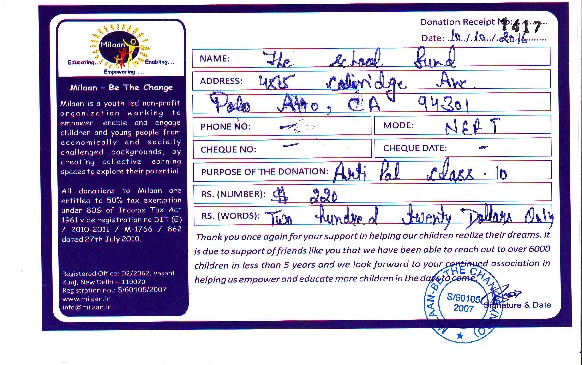 Milaan
Educating... Enabling...
Empowering ...
Milaan – Be The Change
Milaan is a youth led non-profit
organization working to
empower, enable and engage
children and young people from
economically and socially
challenged backgrounds, by
creating collective learning
spaces to explore their potential.
All donations to Milaan are
entitled to 50% tax exemption
under 80G of Income Tax Act
1961 vide registration no DIT (E)
/ 2010-2011 / M-1766 / 862
dated 27th July 2010.
Registered Office: D2/2062, Vasant
Kunj, New Delhi – 110070
Registration no.: S/60105/2007
www.milaan.in
info@milaan.in
Donation Receipt No: 1417
Date: 10/10/2016
NAME: The School Fund
ADDRESS: Coleridge Ave
Palo Alto, CA 94301
PHONE NO: – MODE: NEFT
CHEQUE NO: – CHEQUE DATE: –
PURPOSE OF THE DONATION: Arti Pal class - 10
RS. (NUMBER): $ 220
RS. (WORDS): Two hundred twenty Dollars Only
Thank you once again for your support in helping our children realize their dreams. It
is due to support of friends like you that we have been able to reach out to over 6000
children in less than 5 years and we look forward to your continued association in
helping us empower and educate more children in the days to come.
MILAAN-BE THE CHANGE (NGO)
S/60105/
2007
Signature & Date